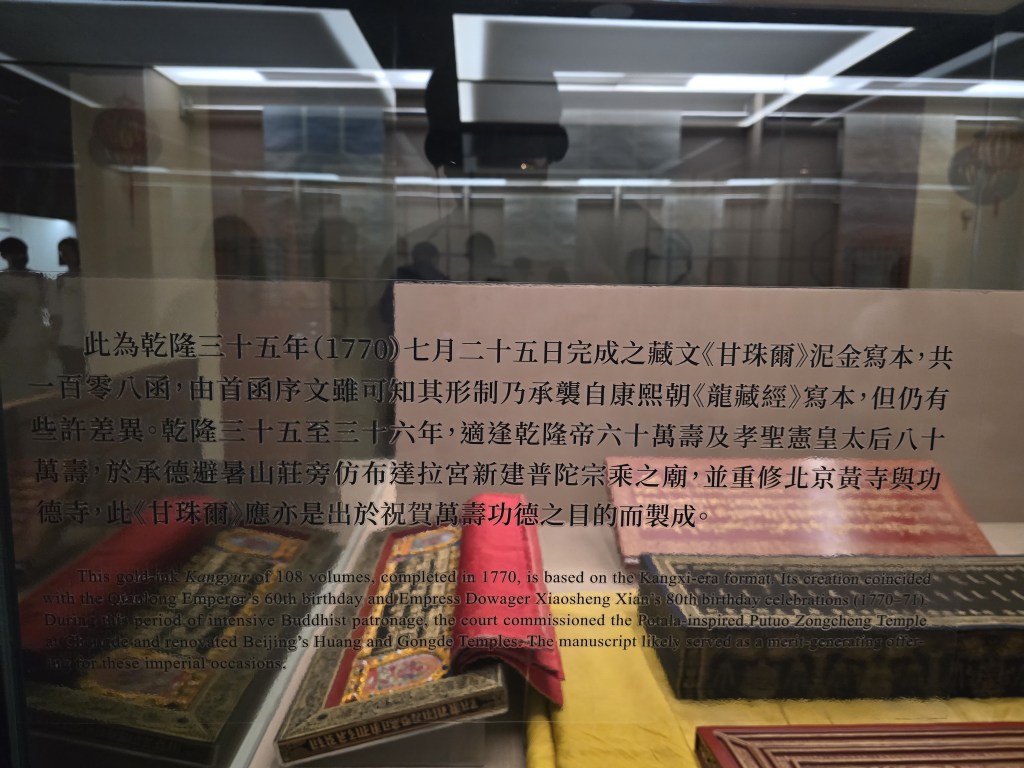 此為乾隆三十五年(1770)七月二十五日完成之藏文《甘珠爾》泥金寫本，共
一百零八函，由首函序文雖可知其形制乃承襲自康熙朝《龍藏經》寫本，但仍有
些許差異。乾隆三十五至三十六年，適逢乾隆帝六十萬壽及孝聖憲皇太后八十
萬壽，於承德避暑山莊旁仿布達拉宮新建普陀宗乘之廟，並重修北京黃寺與功
德寺，此《甘珠爾》應亦是出於祝賀萬壽功德之目的而製成。
This gold-ink Kangyur of 108 volumes, completed in 1770, is based on the Kangxi-era format. Its creation coincided
with the Qianlong Emperor's 60th birthday and Empress Dowager Xiaosheng Xian's 80th birthday celebrations (1770–71).
During this period of intensive Buddhist patronage, the court commissioned the Potala-inspired Putuo Zongcheng Temple
at Chengde and renovated Beijing's Huang and Gongde Temples. The manuscript likely served as a merit-generating offer-
ing for these imperial occasions.